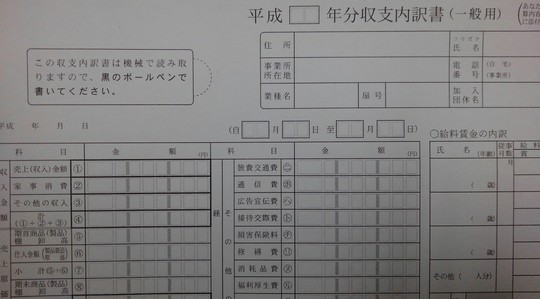 平成 年分収支内訳書(一般用)
(あなた
この収支内訳書は機械で読み取
りますので、黒のボールペンで
書いてください。
住所
フリガナ
氏名
事業所
所在地
電話
番号
(自宅)
(事業所)
業種名
屋号
加入
団体名
平成 年 月 日
(自 月 日 至 月 日)
科目
金額
(円)
科目
金額
(円)
○給料賃金の内訳
氏名
(年齢)
従事
月数
給料
月
(歳)
(歳)
(歳)
その他( 人分)
収入金額
売上(収入)金額 ①
家事消費 ②
その他の収入 ③
計
(①+②+③) ④
売上原価
期首商品(製品)
棚卸高 ⑤
仕入金額 ⑥
小計(⑤+⑥) ⑦
期末商品(製品)
棚卸高 ⑧
経
その他の
旅費交通費 ㊁
通信費 ㋭
広告宣伝費 ㋬
接待交際費 ㋣
損害保険料 ㋠
修繕費 ㋷
消耗品費 ㋦
福利厚生費 ㋸